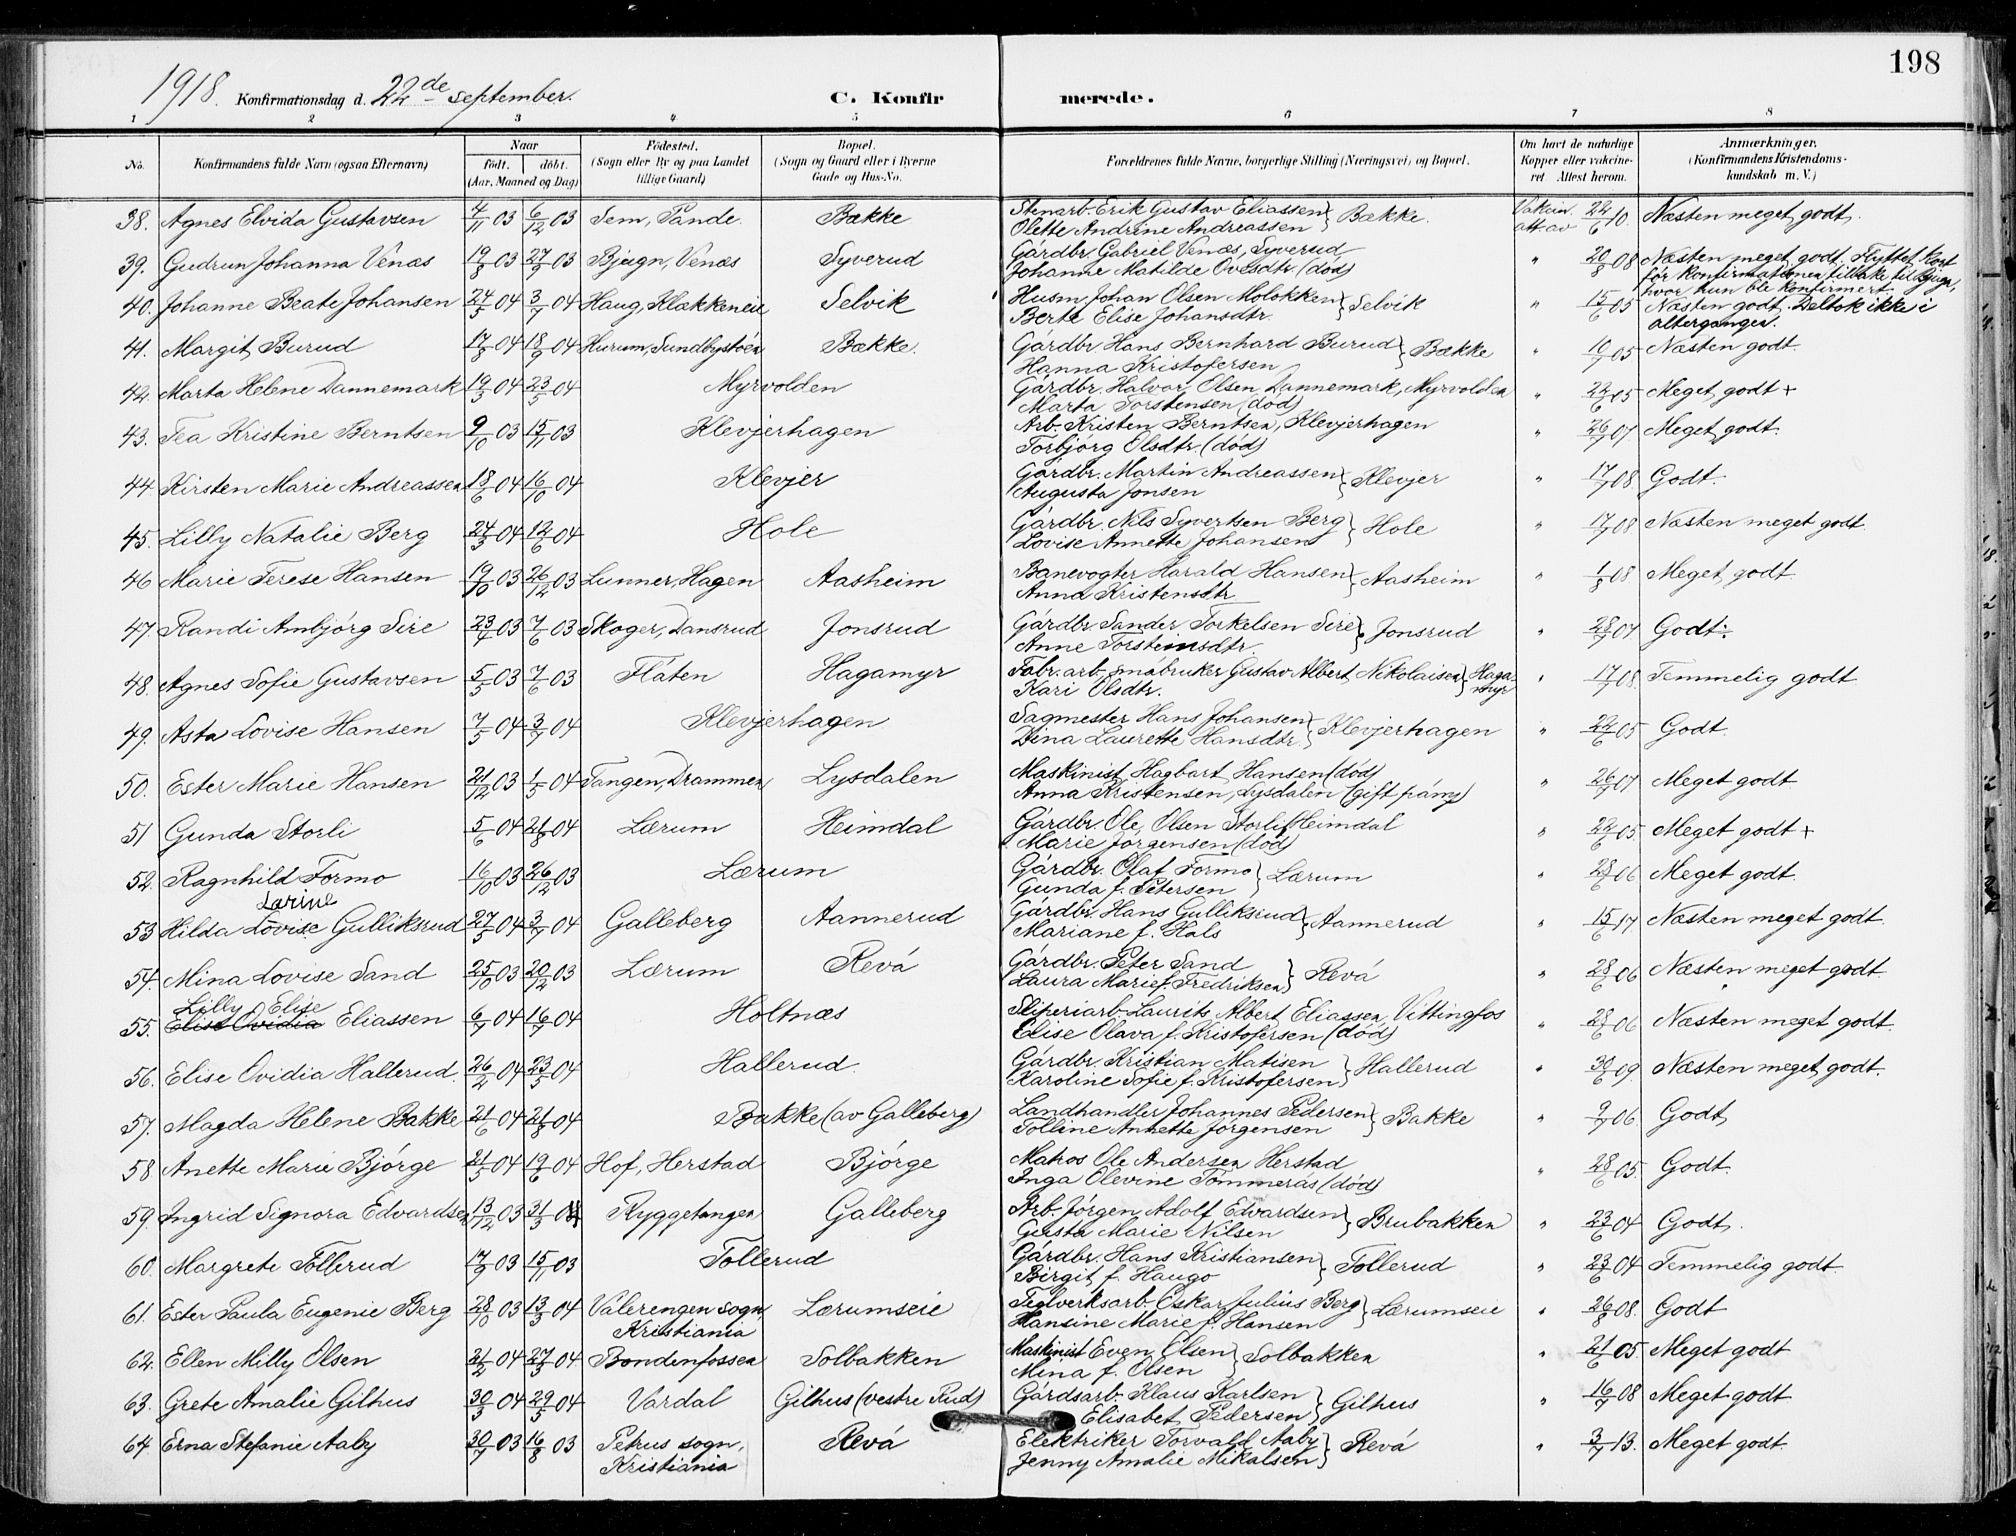 198
1918. Konfirmationsdag d. 22de september. C. Konfirmerede.
1 2 3 4 5 6 7 8
No. Konfirmandens fulde Navn (ogsaa Efternavn) Naar født. døbt. (Aar, Maaned og Dag) Fødested. (Sogn eller By og paa Landet tillige Gaard) Bopæl. (Sogn og Gaard eller i Byerne Gade og Hus-No. Forældrenes fulde Navne, borgerlige Stilling (Næringsvei) og Bopæl. Om havt de naturlige Kopper eller vakcineret. Attest herom. Anmærkninger. (Konfirmandens Kristendomskundskab m. V.)
38. Agnes Elvida Gustavsen 4/11 03 6/12 03 Sem, Pande. Bække Stenarb. Erik Gustav Eliassen } Bække. Vakcin. att. av 22/6 10. Næsten meget godt.
Olette Andrine Andreassen
39. Gudrun Johanna Venæs 19/8 03 27/9 03 Bjugn, Venæs Syverud Gårdbr. Gabriel Venæs, Syverud " 20/8 08 Næsten meget godt. Flyttet kort
Johanne Matilde Ovesdtr. (död) før konfirmationen tilbake til Bjugn,
hvor hun ble konfirmert.
40. Johanne Beate Johansen 24/5 04 3/7 04 Haug, Klakkeneie Selvik Husm. Johan Olsen Molokken } Selvik " 15/6 05 Næsten godt. Deltok ikke i
Berte Elise Johansdtr. altergangen.
41. Margit Burud 17/8 04 18/9 04 Hurum, Sundbystöen Bække. Gårdbr. Hans Bernhard Burud } Bække " 10/7 05 Næsten godt.
Hanna Kristofersen
42. Marta Helene Dannemark 19/3 04 23/5 04 Myrvolden Gårdbr. Halvor Olsen Dannemark, Myrvolden " 22/6 05 Meget godt +
Marta Torstensen (död)
43. Tea Kristine Berntsen 9/10 03 15/11 03 Klevjerhagen Arb. Kristen Berntsen, Klevjerhagen " 26/7 07 Meget godt.
Torbjörg Olsdtr. (död)
44. Kirsten Marie Andreassen 18/6 04 16/10 04 Klevjer Gårdbr. Martin Andreassen } Klevjer " 17/7 08. Godt.
Augusta Jonsen
45. Lilly Natalie Berg 24/3 04 12/6 04 Hole Gårdbr. Nils Syvertsen Berg } Hole " 17/7 08 Næsten meget godt.
Lovise Annette Johansen
46 Marie Terese Hansen 19/10 03 26/12 03 Lunner, Hagen Aasheim Banevogter Harald Hansen } Aasheim " 1/8 08 Meget godt.
Anna Kristensdtr.
47. Randi Ambjörg Sire 23/4 03 7/6 03 Skoger, Dansrud Jonsrud Gårdbr. Sander Torkelsen Sire } Jonsrud " 28/7 04 Godt.
Anne Torsteinsdtr.
48. Agnes Sofie Gustavsen 5/5 03 7/6 03 Flåten Hagamyr Fabr.arb. småbruker Gustav Albert Nikolaisen } Hagamyr " 17/7 08. Temmelig godt
Kari Olsdtr.
49. Asta Lovise Hansen 7/5 04 3/7 04 Klevjerhagen Sagmester Hans Johansen } Klevjerhagen " 22/6 05 Godt.
Dina Laurette Hansdtr.
50. Ester Marie Hansen 21/12 03 1/5 04 Tangen, Drammen Lysdalen Maskinist Hagbart Hansen (död) " 26/7 07 Meget godt
Anna Kristensen, Lysdalen (gift påny)
51 Gunda Storli 5/6 04 21/8 04 Lærum Heimdal Gårdbr. Ole Olsen Storli, Heimdal " 22/6 05 Meget godt +
Marie Jörgensen (död)
52. Ragnhild Formo 16/10 03 26/12 03 Lærum Gårdbr. Olaf Formo } Lærum " 28/6 06 Meget godt.
Gunda f. Petersen
Lærine
53 Hilda Lovise Gulliksrud 27/5 04 3/7 04 Galleberg Aannerud Gårdbr. Hans Gulliksrud } Aannerud " 15/6 17 Næsten meget godt.
Mariane f. Hals
54. Mina Lovise Sand 25/10 03 20/12 03 Lærum Revå Gårdbr. Peter Sand } Revå " 28/6 06 Næsten meget godt.
Laura Marie f. Fredriksen
Lilly Elise
55. Elise Ovidia Eliassen 6/7 04 16/7 04 Holtnæs Sliperiarb. Laurits Albert Eliassen, Vittingfos " 28/6 06 Næsten meget godt.
Elise Olava f. Kristofersen (död)
56. Elise Ovidia Hallerud. 26/2 04 23/5 04 Hallerud. Gårdbr. Kristian Matisen } Hallerud " 30/6 09. Næsten meget godt.
Karoline Sofie f. Kristofersen
57. Magda Helene Bakke 21/6 04 21/8 04 Bakke (av Galleberg) Landhandler Johannes Pedersen } Bakke " 9/7 06 Godt
Tolline Annette Jörgensen
58 Anette Marie Björge 21/5 04 19/6 04 Hof, Herstad Björge Matros Ole Andersen Herstad " 28/6 05. Godt.
Inga Olevine Tömmerås (död)
59. Ingrid Signora Edvardsen 13/12 03 31/3 04 Ryggetangen Galleberg Arb. Jörgen Adolf Edvardsen } Brubakken " 23/6 04 Godt.
Gusta Marie Nilsen
60. Margrete Tollerud 17/9 03 15/11 03 Tollerud Gårdbr. Hans Kristiansen } Tollerud " 23/6 04 Temmelig godt.
Birgit f. Haugo
61. Ester Paula Eugenie Berg 28/10 03 13/3 04 Valerengen sogn, Lærumseie Teglverksarb. Oskar Julius Berg } Lærumseie " 26/8 08. Godt
Kristiania Hansine Marie f. Hansen
62. Ellen Milly Olsen 21/2 04 27/3 04 Bondenfossen Solbakken Maskinist Even Olsen } Solbakken " 21/6 05 Meget godt
Mina f. Olsen
63. Grete Amalie Gilhus 30/3 04 29/5 04 Vardal Gilhus (vestre Rud) Gårdsarb. Klaus Karlsen } Gilhus " 16/7 08 Meget godt
Elisabet Pedersen
64. Erna Stefanie Aaby 30/7 03 16/8 03 Petrus sogn, Revå Elektriker Torvald Aaby } Revå " 3/7 13. Meget godt.
Kristiania Jenny Amalie Mikalsen